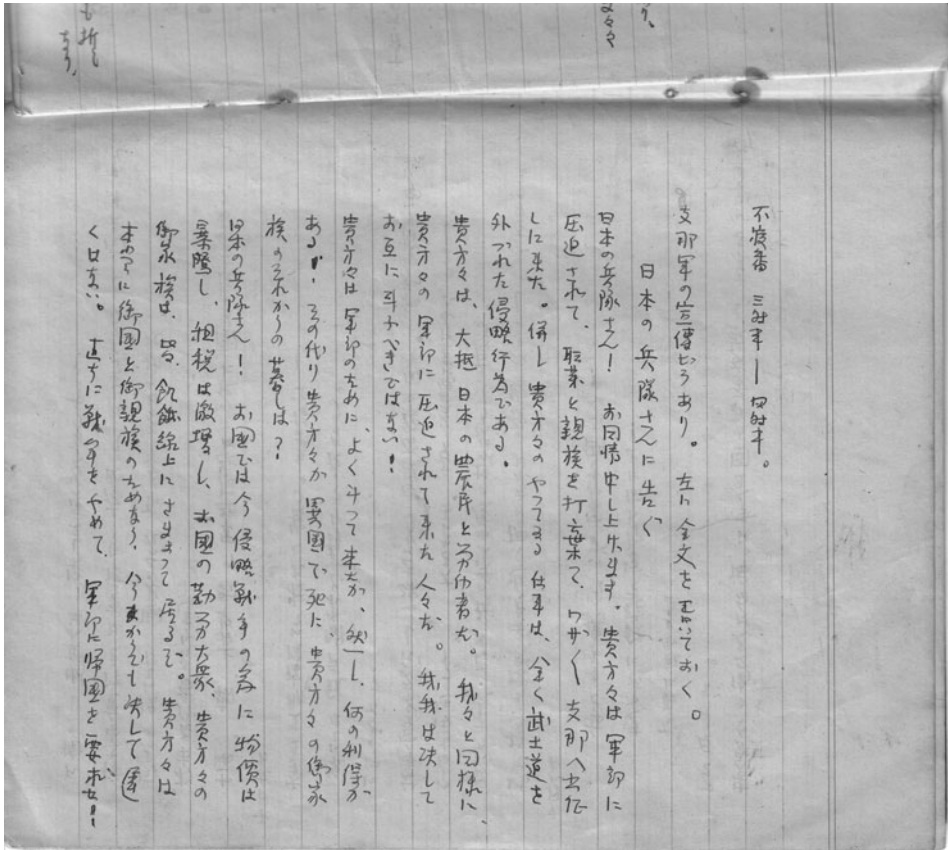 り、
々々
も折し
不寝番 三時半ー四時半。
支那軍の宣傳ビラあり。左に全文を書いておく。
日本の兵隊さんに告ぐ
日本の兵隊さん! お同情申し上げます。貴方々は軍部に
圧迫されて、職業と親族を打棄て、ワザ〱支那へ出征
しに来た。併し貴方々のやってゐる仕事は、全く武士道を
外づれた侵略行為である。
貴方々は、大抵日本の農民と労働者だ。我々と同様に、
貴方々の軍部に圧迫されて来た人々だ。我我は決して
お互に斗ふべきではない!
貴方々は軍部のために、よく斗って来たが、然し、何の利得が
あるか! その代り貴方々が異国で死に、貴方々の御家
族のこれからの暮しは?
日本の兵隊さん! お国では今侵略戦争の為に物價は
暴騰し、租税は激増し、お国の勤労大衆、貴方々の
御家族は、皆、飢餓線上にさまよって居るぞ。貴方々は
本当に御国と御親族のためなら、今からでも決して遅
くはない。直ちに戦争をやめて、軍部に帰国を要求せよ!